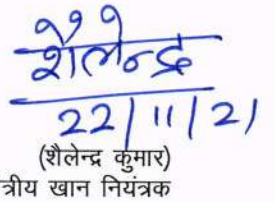 शैलेन्द्र
22/11/21
(शैलेन्द्र कुमार)
त्रीय खान नियंत्रक